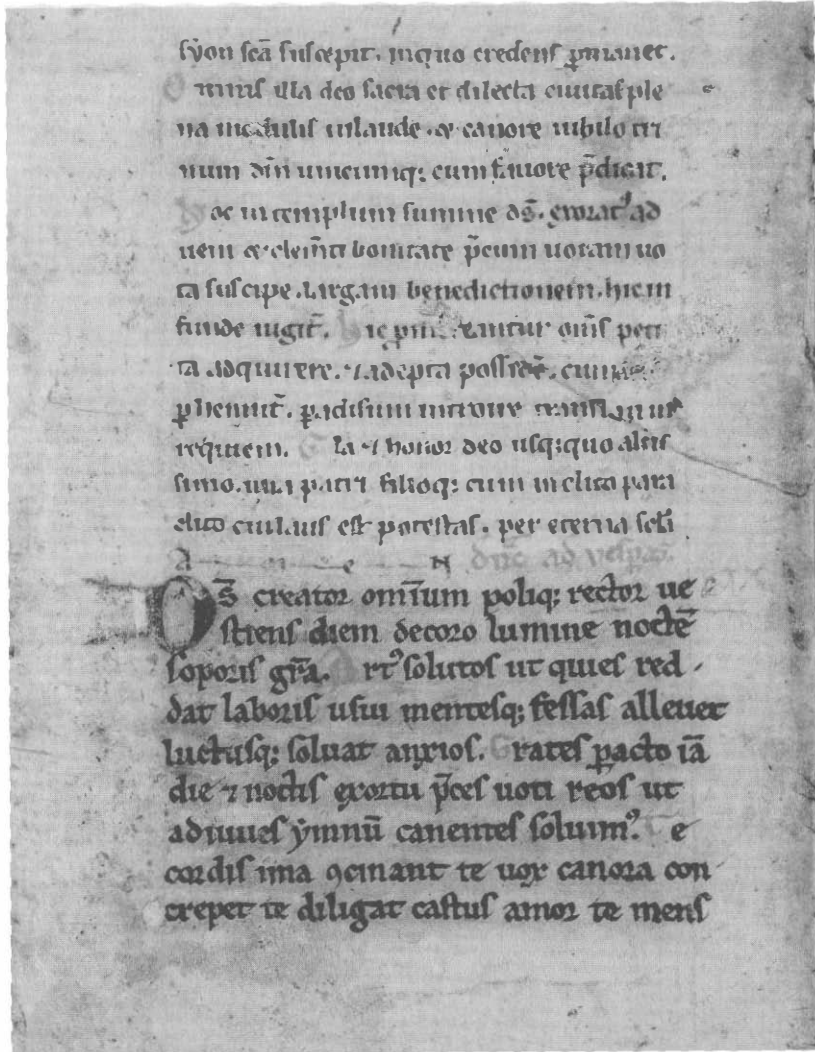 syon scā suscepit. inquo credens ꝑmanet.
Omnis illa deo sacra et dilecta ciuitas ple
na modulis inlaude. & canore iubilo tri
num dm̄ unicumq; cum feruore p̄dicat.
Hoc in templum summe ds̄. exorat᷒ ad
ueni & clem̄ti bonitate p̄cum uotam uo
ta suscipe. largam benedictionem. hic in
funde iugit̄. Hic antur om̄s peti
ta adquirere. ⁊ adepta possidē. cum
ꝑhennit̄. ꝑadisum introire translati in
requiem. Gla ⁊ honor deo usq;quo altis
simo. una patri filioq; cum inclito para
clito cui laus est potestas. per eterna scl̄i
A m e N dn̄c ad uesꝑas.
Ds̄ creator om̄ium poliq; rector ue
stiens diem decoro lumine noctē
soporis gr̄a. Art᷒ solutos ut quies red
dat laboris usui mentesq; fessas alleuet
luctusq; soluat anxios. Grates ꝑacto iā
die ⁊ noctis exortu p̄ces uoti reos ut
adiuues ẏmnū canentes soluim᷒. Te
cordis ima ꝯcinant te uox canora con
crepet te diligat castus amor te mens